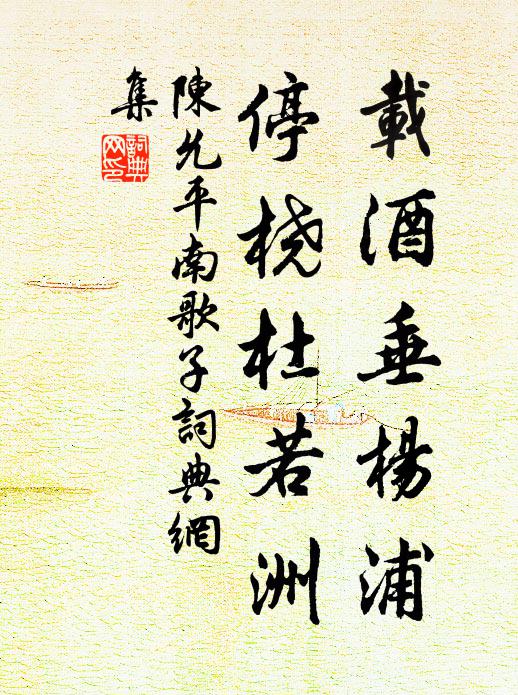 載酒垂楊浦
停桡杜若洲
陳允平南歌子詞典網
集
詞典
网印